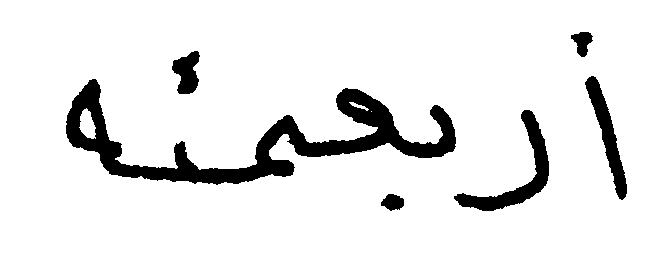 أربعمئه